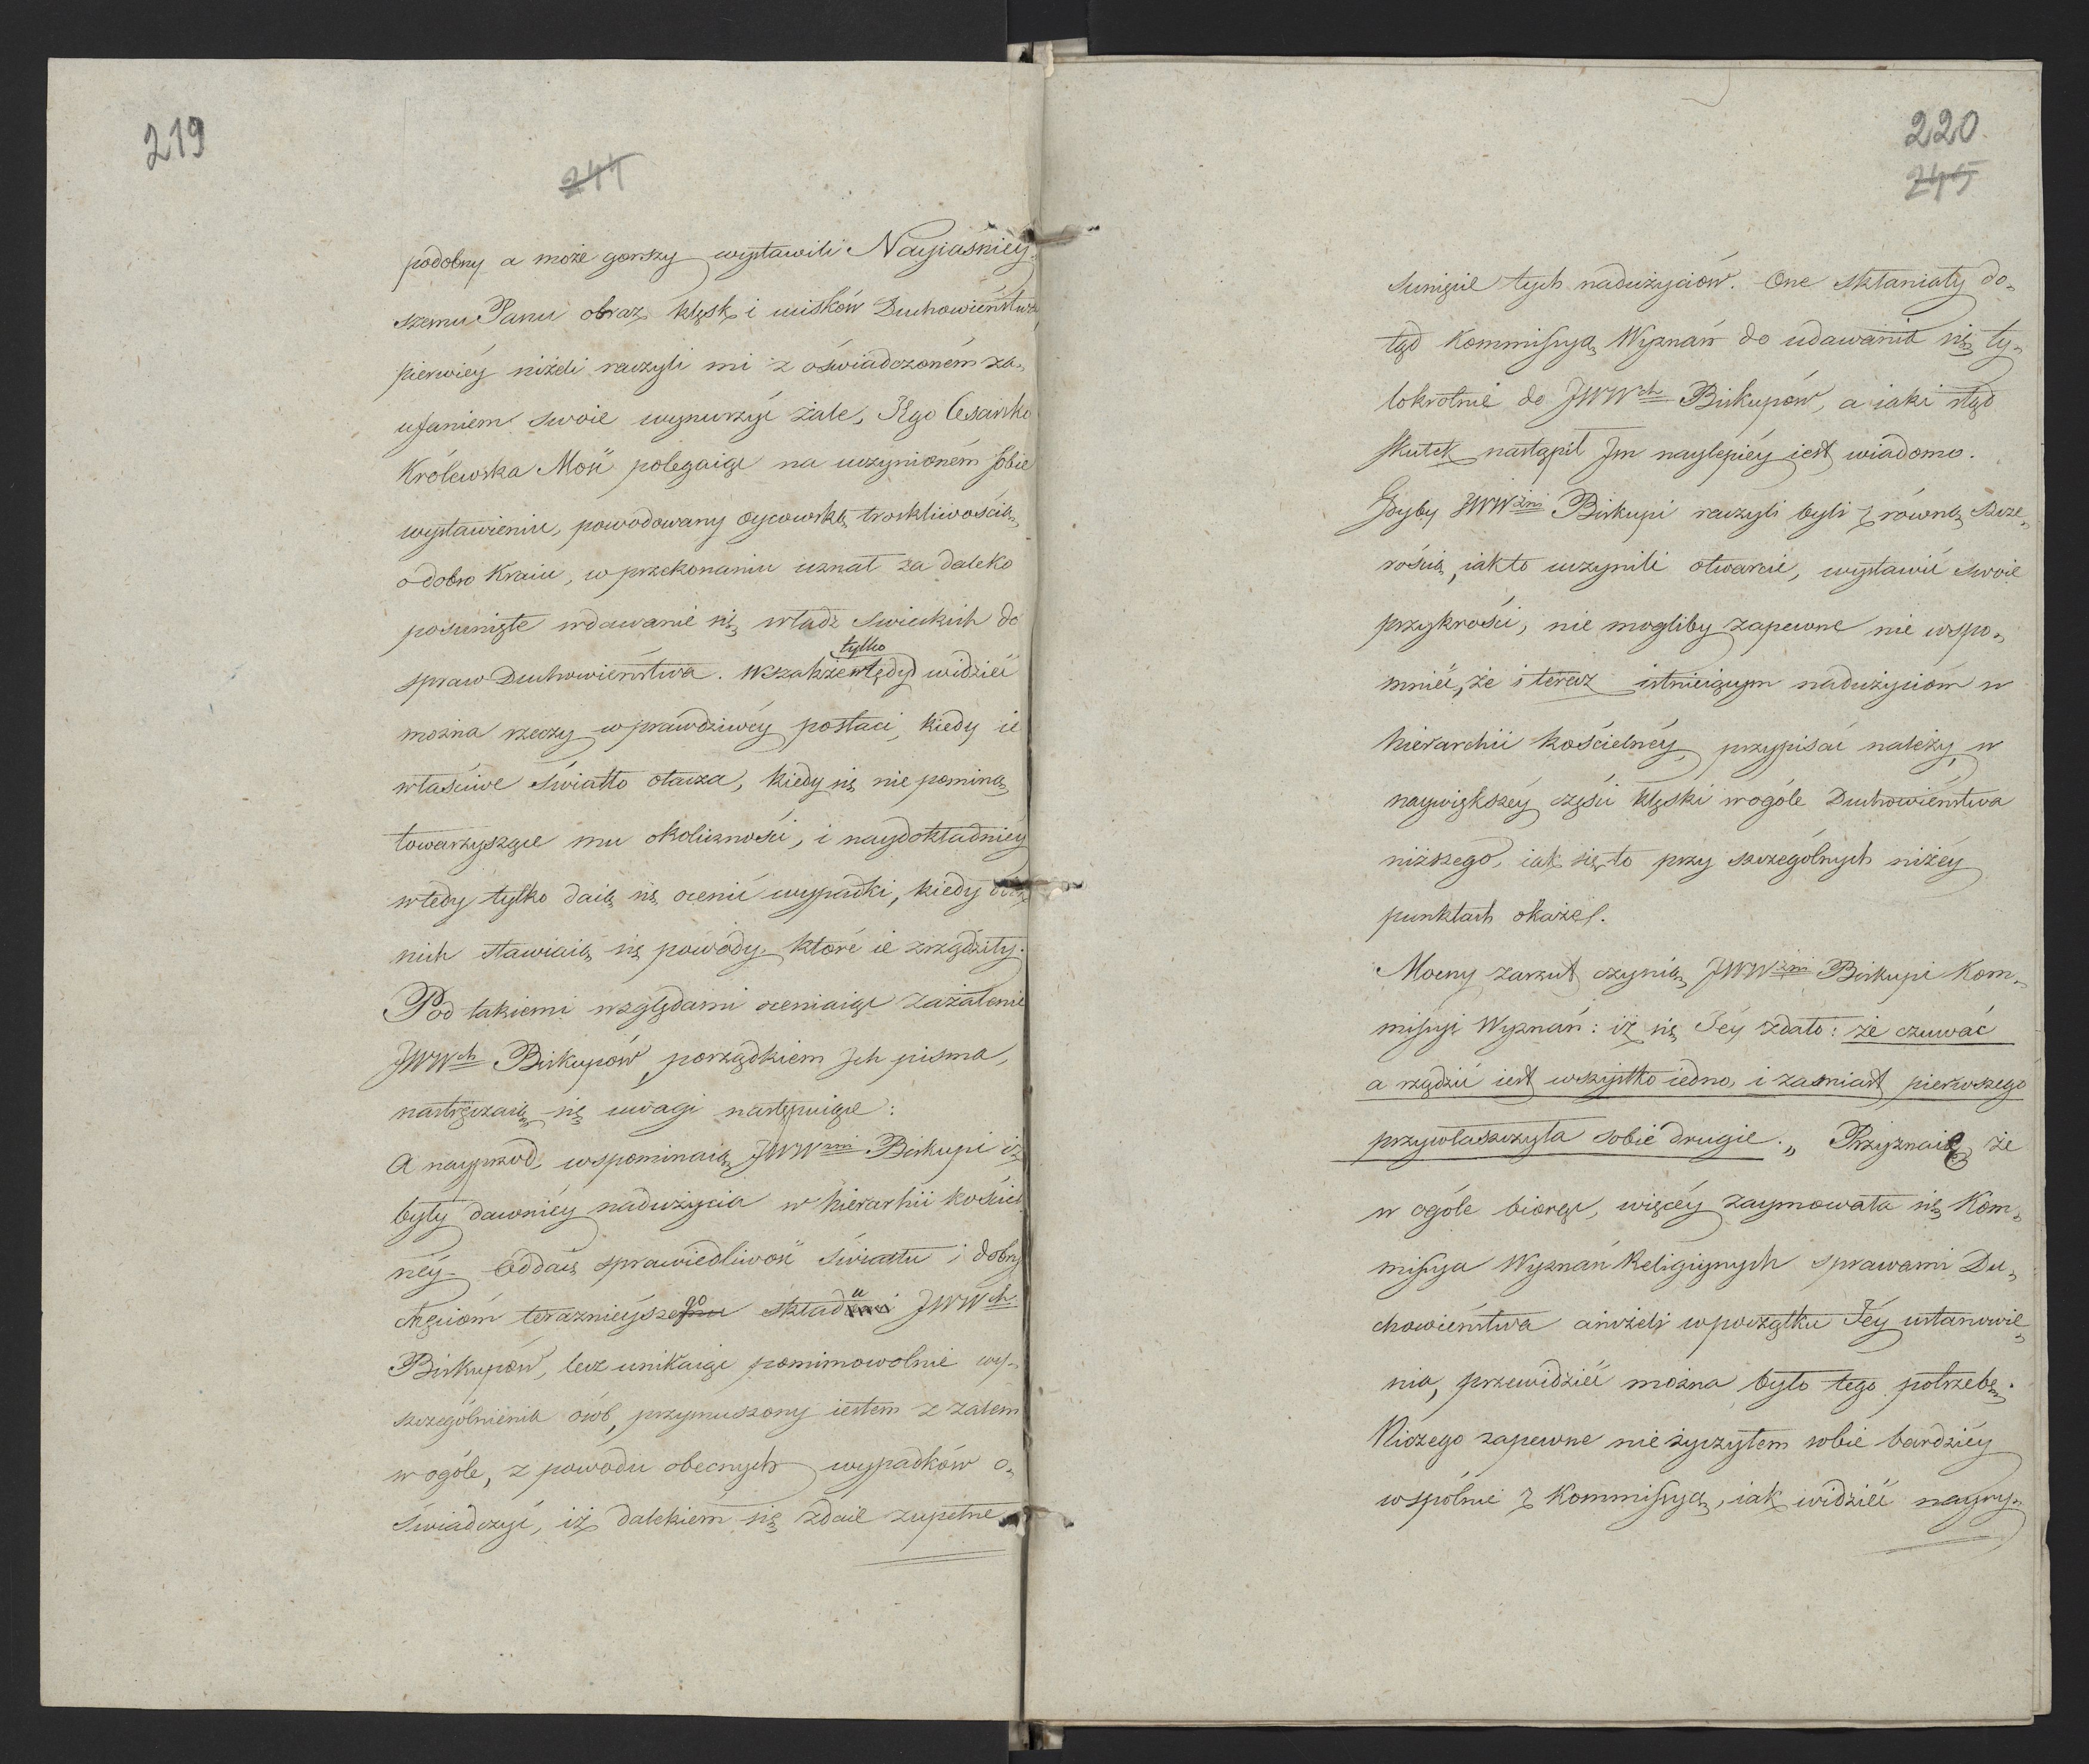 219
244
podobny a może gorszy wystawili Nayiaśniey-
szemu Panu obraz klęsk i ucisków Duchowieństwa,
pierwiéy niżeli raczyli mi z oświadczoném za-
ufaniem swoie wynurzyć żale, Jego Cesarsko
Królewska Mość polegaiąc na uczynioném sobie
wystawieniu, powodowany oycowską troskliwością
o dobro Kraiu, w przekonaniu uznał za daleko
posunięte wdawanie się władz Swieckich do
spraw Duchowieństwa. Wszakże wtedy tylko widzieć
można rzeczy w prawdziwéy postaci, kiedy ie
właściwe światło otacza, kiedy się nie pominą
towarzyszące mu okoliczności, i naydokładniéy
wtedy tylko daią się ocenić wypadki, kiedy
nich stawiaią się powody, które ie zrządziły.
Pod takiemi względami oceniaiąc zażalenie
JWWch Biskupów, porządkiem Ich pisma,
nastręczaią się uwagi następuiące:
A nayprzod, wspominaią JWWżni Biskupi iż
były dawniéy nadużycia w hierarhii kościel
néy. Oddaię sprawiedliwość światłu i dobrym
chęciom teraznieyszego składu JWWch
Biskupów, lecz unikaiąc pomimowolnie wy-
szczególnienia osób, przymuszony iestem z żalem
w ogóle, z powodu obecnych wypadków o-
świadczyć, iż dalekiém się zdaie zupełne
220.
245
sunięcie tych nadużyciów. One skłaniały do-
tąd Kommissyą Wyznań do udawania się ty-
lokrotnie do JWWch Biskupów, a iaki stąd
skutek nastąpił Im naylepiéy iest wiadomo.
Gdyby JWWżni Biskupi raczyli byli z równą szcze-
rością, iak to uczynili otwarcie, wystawić swoie
przykrości, nie mogliby zapewne nie wspo-
mnieć, że i teraz istnieiącym nadużyciom w
hierarchii kościelnéy przypisać należy w
naywiększéy części klęski w ogóle Duchowieństwa
niższego, iak się to przy szczególnych niżéy
punktach okaże.
Mocny zarzut czynią JWWżni Biskupi Kom-
missyi Wyznań: iż się Jéy zdało: że czuwać
a rządzić iest wszystko iedno, i zamiast pierwszego
przywłaszczyła sobie drugie.„ Przyznaię że
w ogóle biorąc, więcéy zaymowała się Kom-
missya Wyznań Religiynych sprawami Du-
chowieństwa aniżeli w początku Jéy ustanowie-
nia, przewidzieć można było tego potrzebę.
Niczego zapewne nie życzyłem sobie bardziéy
wspólnie z Kommissyą, iak widzieć nayry-